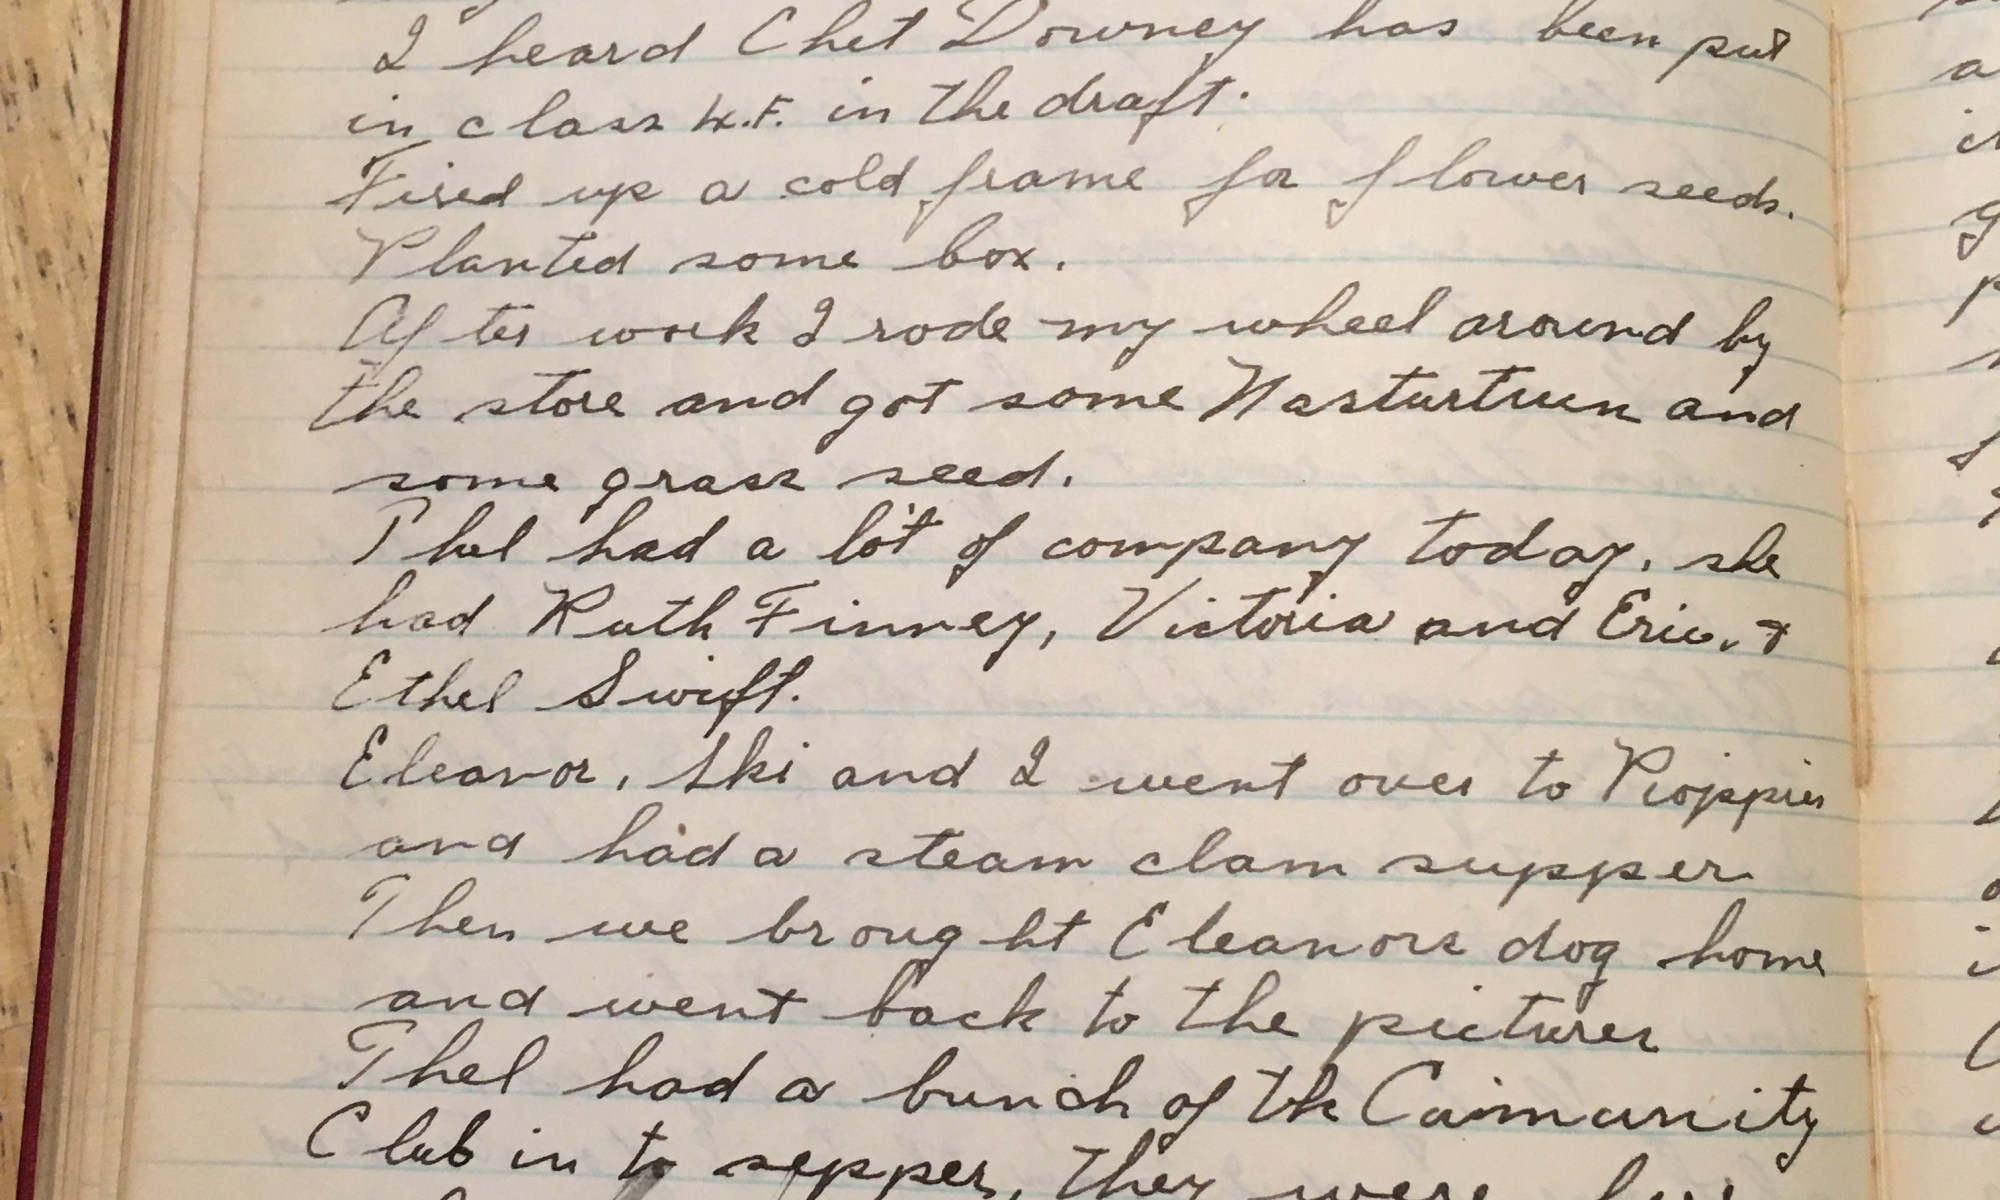 I heard Chet Downey has been put
in class 4.F. in the draft.
Fixed up a cold frame for flower seeds.
Planted some box.
After work I rode my wheel around by
the store and got some Nasturtium and
some grass seed.
Thel had a lot of company today, she
had Ruth Finney, Victoria and Eric, &
Ethel Swift.
Eleanor, Ski and I went over to
and had a steam clam supper
Then we brought Eleanors dog home
and went back to the pictures
Thel had a bunch of the Community
Club in to supper, they were